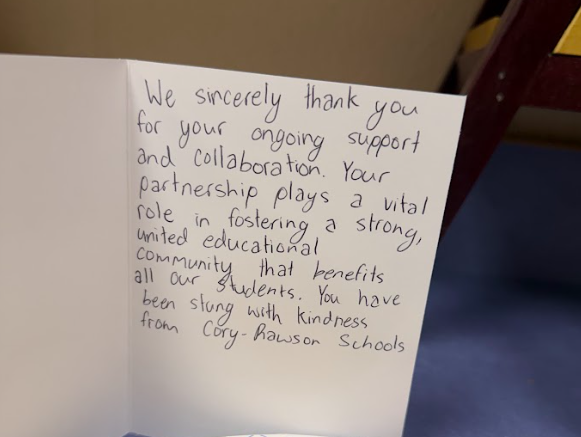 We sincerely thank you
for your ongoing support
and collaboration. Your
partnership plays a vital
role in fostering a strong,
united educational
community that benefits
all our students. You have
been stung with kindness
from Cory-Rawson Schools